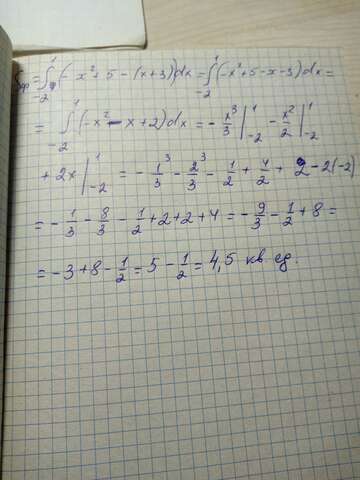 Sф = ∫₋₂¹ (-x²+5-(x+3))dx = ∫₋₂¹ (-x²+5-x-3)dx =
= ∫₋₂¹ (-x²-x+2)dx = - x³/3 |₋₂¹ - x²/2 |₋₂¹
+ 2x |₋₂¹ = - 1³/3 - 2³/3 - 1/2 + 4/2 + 2 - 2(-2)
= - 1/3 - 8/3 - 1/2 + 2 + 2 + 4 = - 9/3 - 1/2 + 8 =
= -3+8- 1/2 = 5 - 1/2 = 4,5 кв ед.